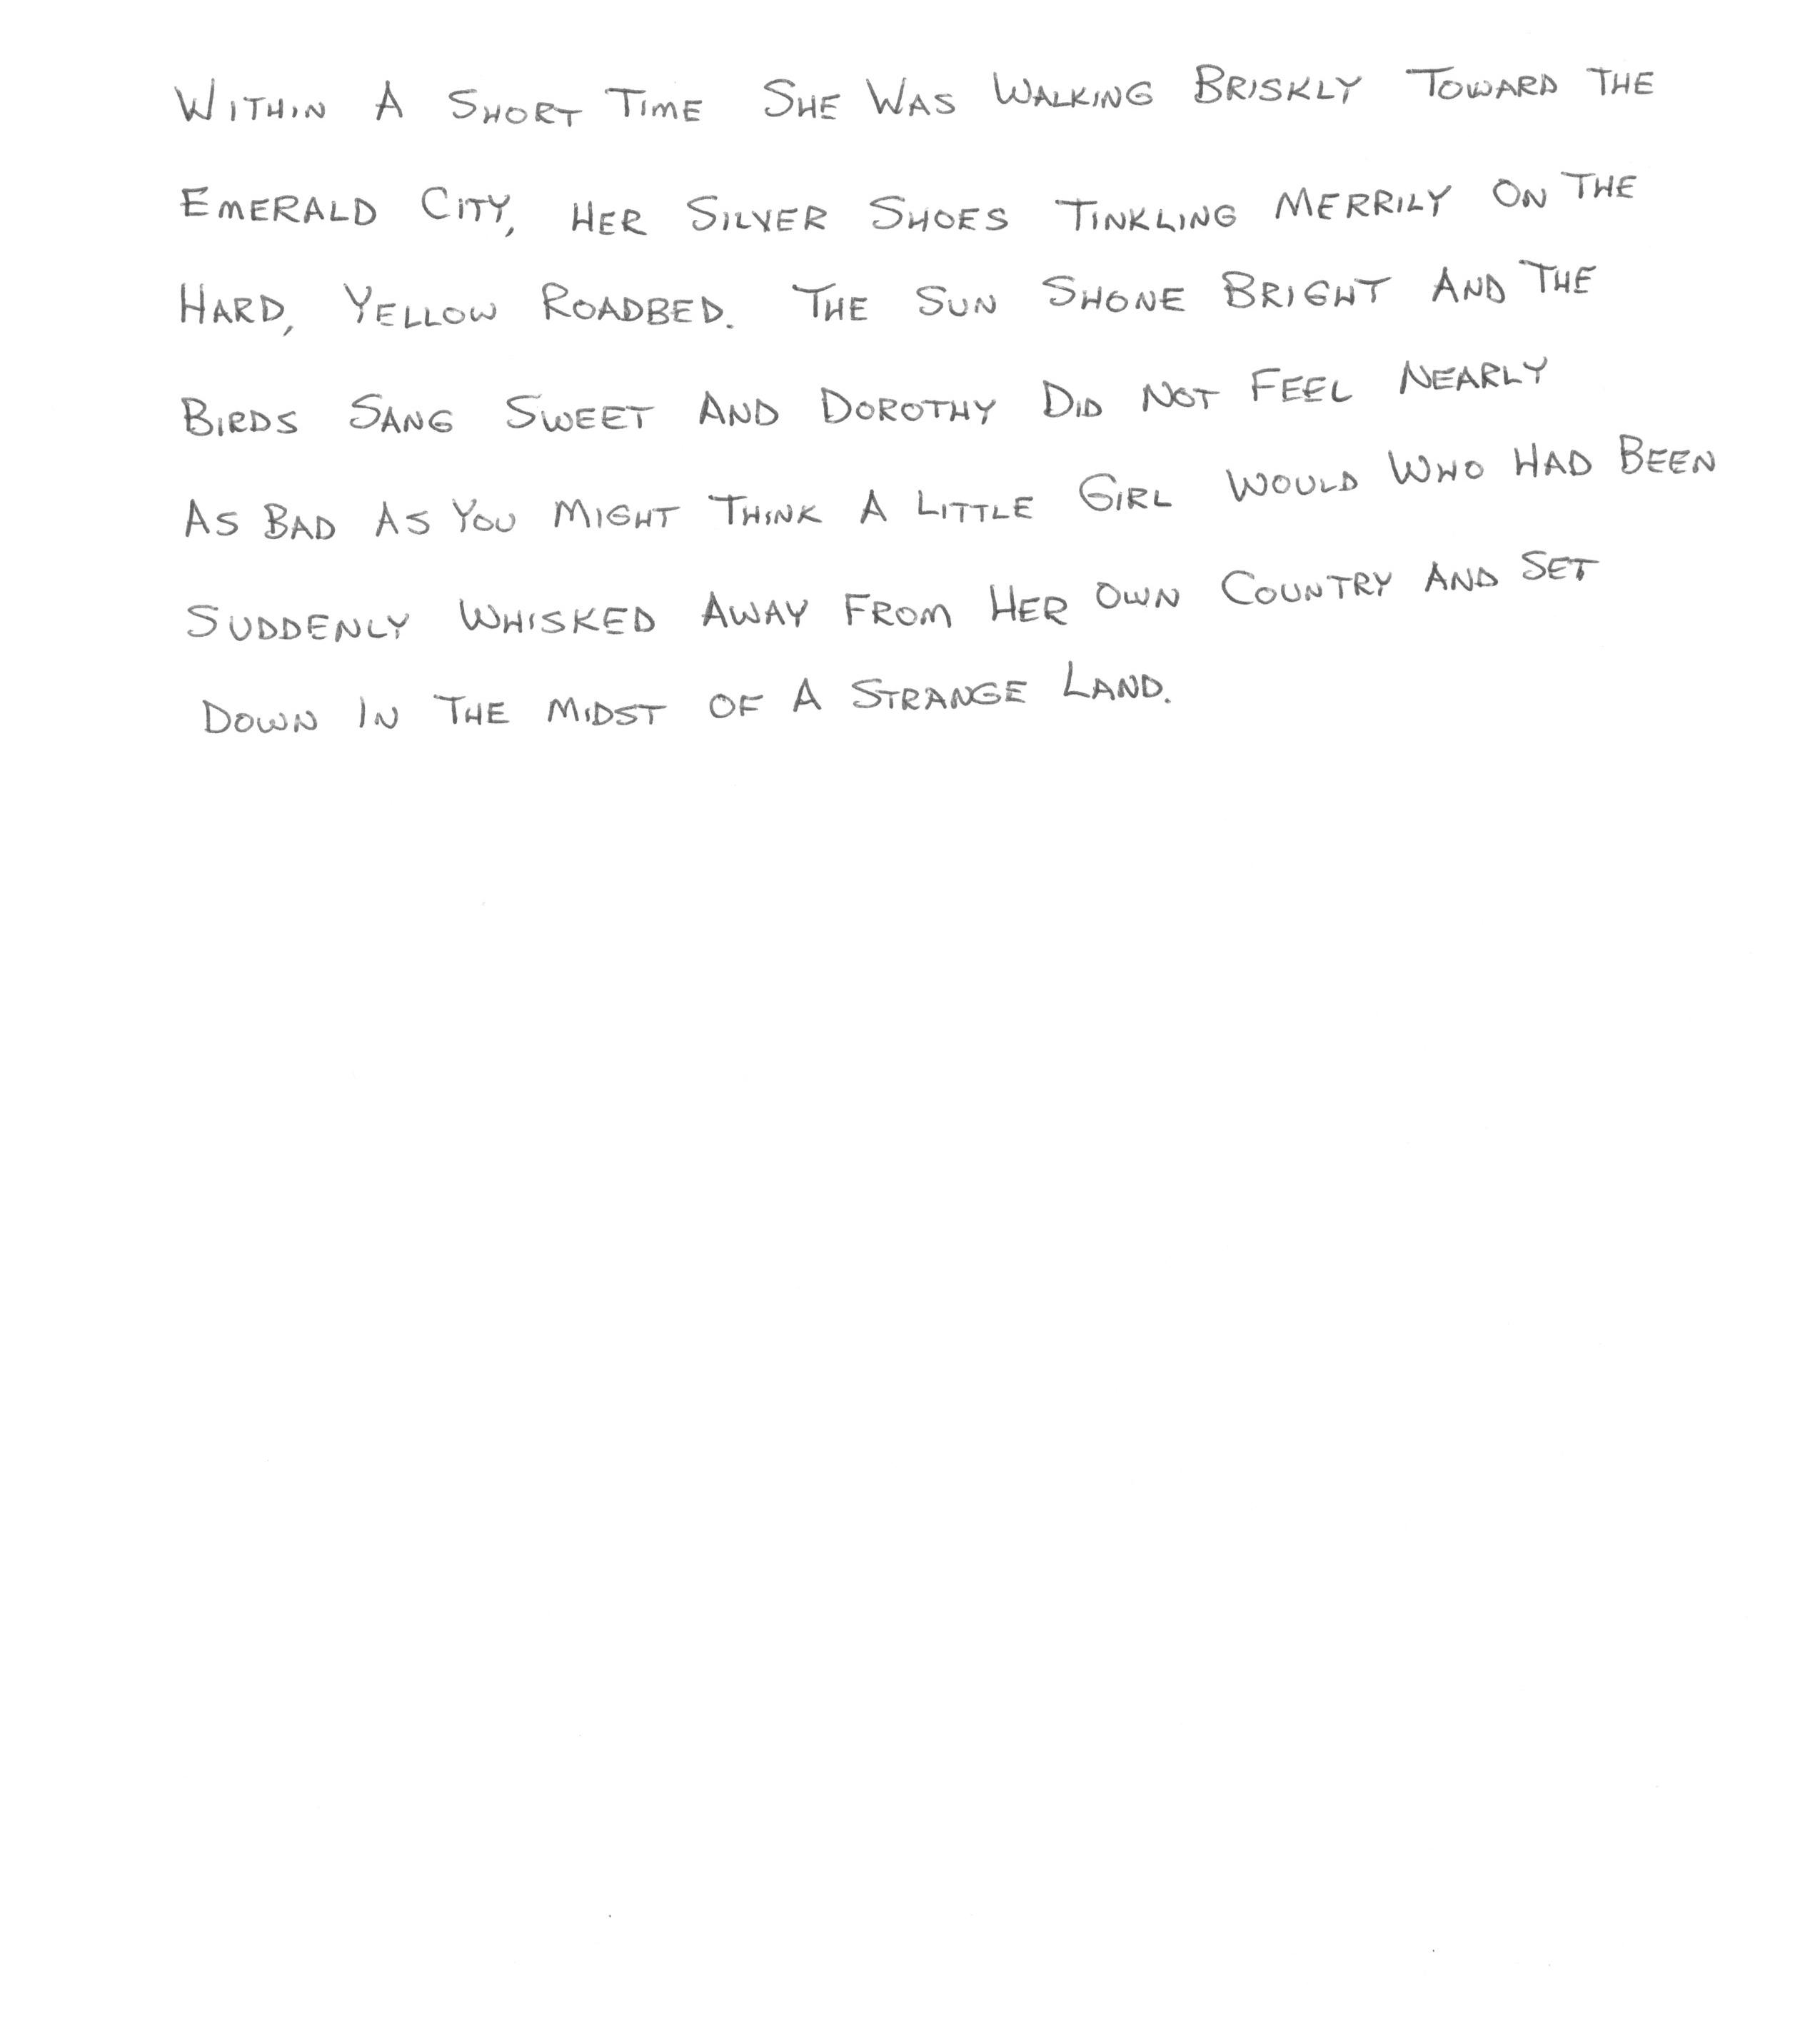 Within A Short Time She Was Walking Briskly Toward The
Emerald City, Her Silver Shoes Tinkling Merrily On The
Hard, Yellow Roadbed. The Sun Shone Bright And The
Birds Sang Sweet And Dorothy Did Not Feel Nearly
As Bad As You Might Think A Little Girl Would Who Had Been
Suddenly Whisked Away From Her Own Country And Set
Down In The Midst Of A Strange Land.